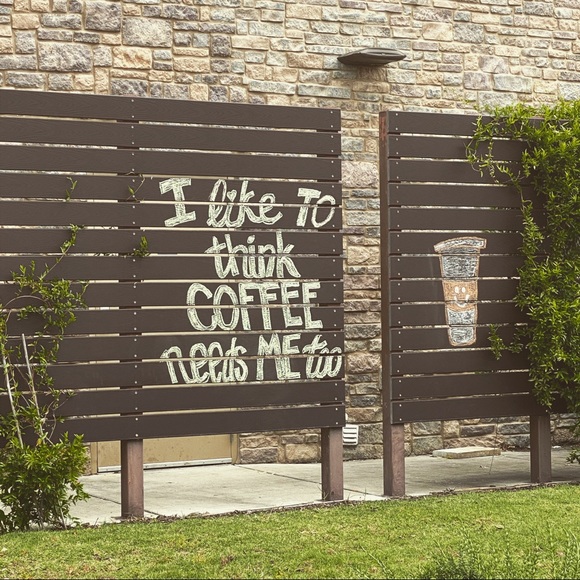 I like To
think
COFFEE
needs ME too